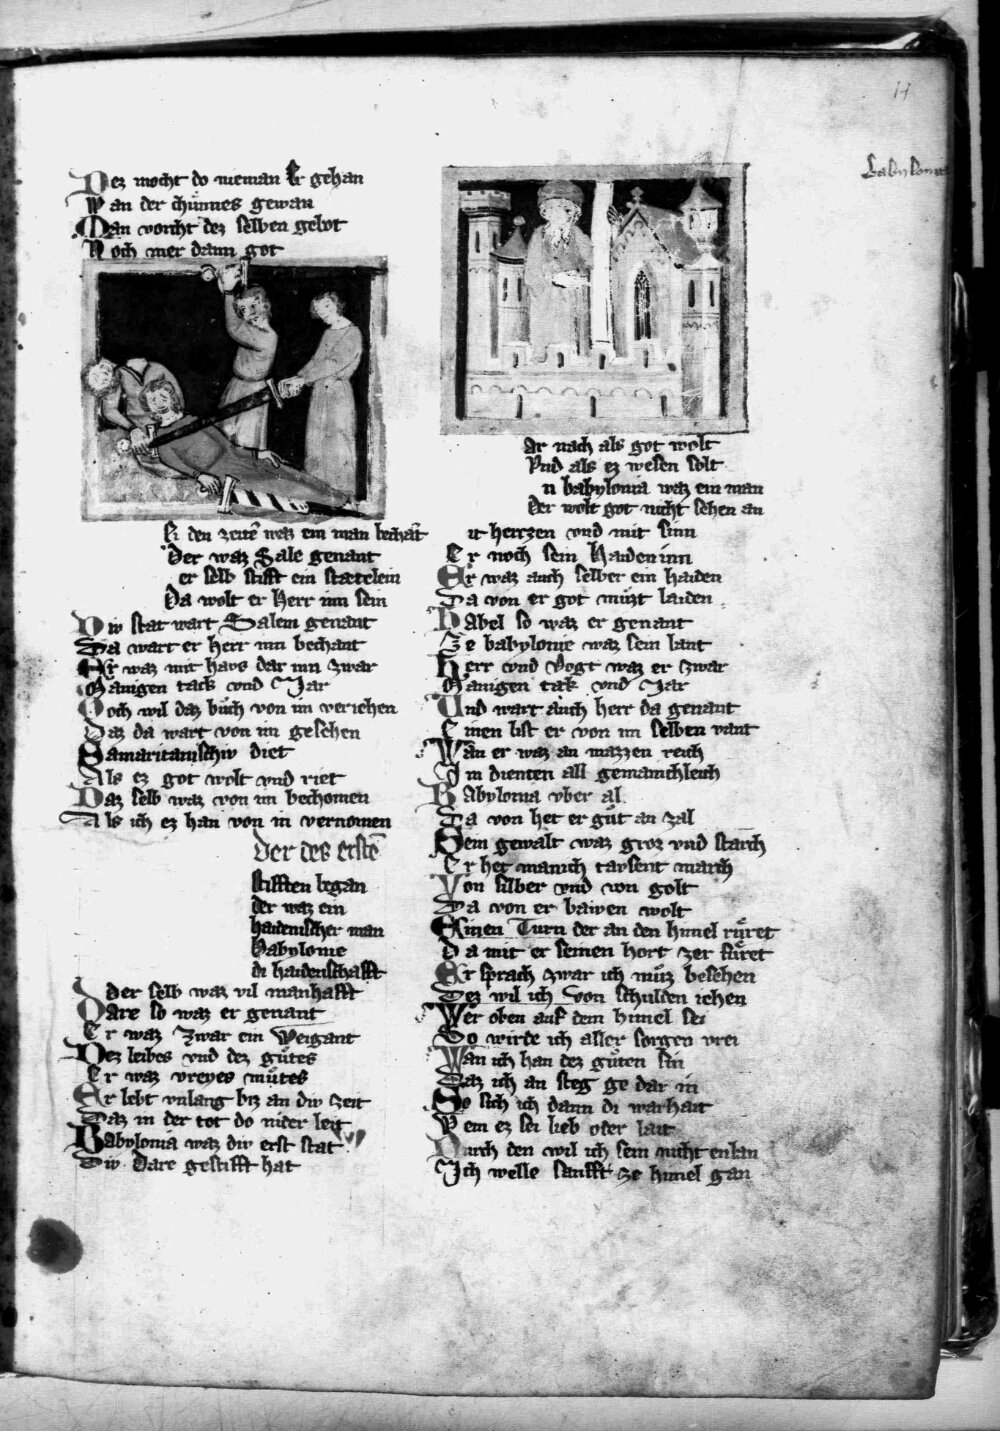 11
Babylonia
Dez mocht do nieman Er gehan
Wan der chünnes gewan
Man vorcht dez selben gebot
Noch mer dann got
Bi den zeitē waz ein man bechāt
Der waz Sale genant
er selb stifft ein stætelein
Da wolt er Herr inn sein
Div stat wart Salem genant
Da wart er herr inn bechant
Er waz mit havs dar inn zwar
Manigen tack vnd Jar
Doch wil daz bůch von im veriehen
Daz da wart von im gesehen
Samaritanischiv diet
Als ez got wolt vnd riet
Daz selb waz von im bechomen
Als ich ez han von in vernomen
Der des erstē
stifften began
der waz ein
haidenischer man
Babylonie
di haidenschafft
der selb waz vil manhafft
Dare so waz er genant
Er waz zwar ein Weigant
Dez leibes vnd dez gůtes
Er waz vreyes můtes
Er lebt vnlang biz an div zeit
Daz in der tot do nider leit
Babylonia waz div erst stat
Div Dare gestifft hat
Dar nach als got wolt
Vnd als ez wesen solt
In babylonia waz ein man
Der wolt got nicht sehen an
it herzen vnd mit sinn
Er noch sein Haideninn
Er waz auch selber ein haiden
Da von er got můzt laiden
Babel so waz er genant
Ze babylonie waz sein lant
Herr vnd Vogt waz er zwar
Manigen tak vnd Jar
Und wart auch herr da genant
Einen list er von im selben vant
Wan er waz an mazzen reich
Im dienten all gemainchleich
Babylonia vber al
Da von het er gůt an zal
Sein gewalt waz groz vnd starch
Er het manich tavsent march
Von silber vnd von golt
Da von er bawen wolt
Einen Turn der an den himel růret
Da mit er seinen hort zer fůret
Er sprach zwar ich můz besehen
Dez wil ich von schulden iehen
Wer oben auf dem himel sei
So wirde ich aller sorgen vrei
Wan ich han dez gůten sin
Daz ich an steg ge dar in
So sich ich dann di warhait
Wem ez sei lieb oder lait
Durch den wil ich sein nicht enlan
Ich welle sanfft ze himel gan